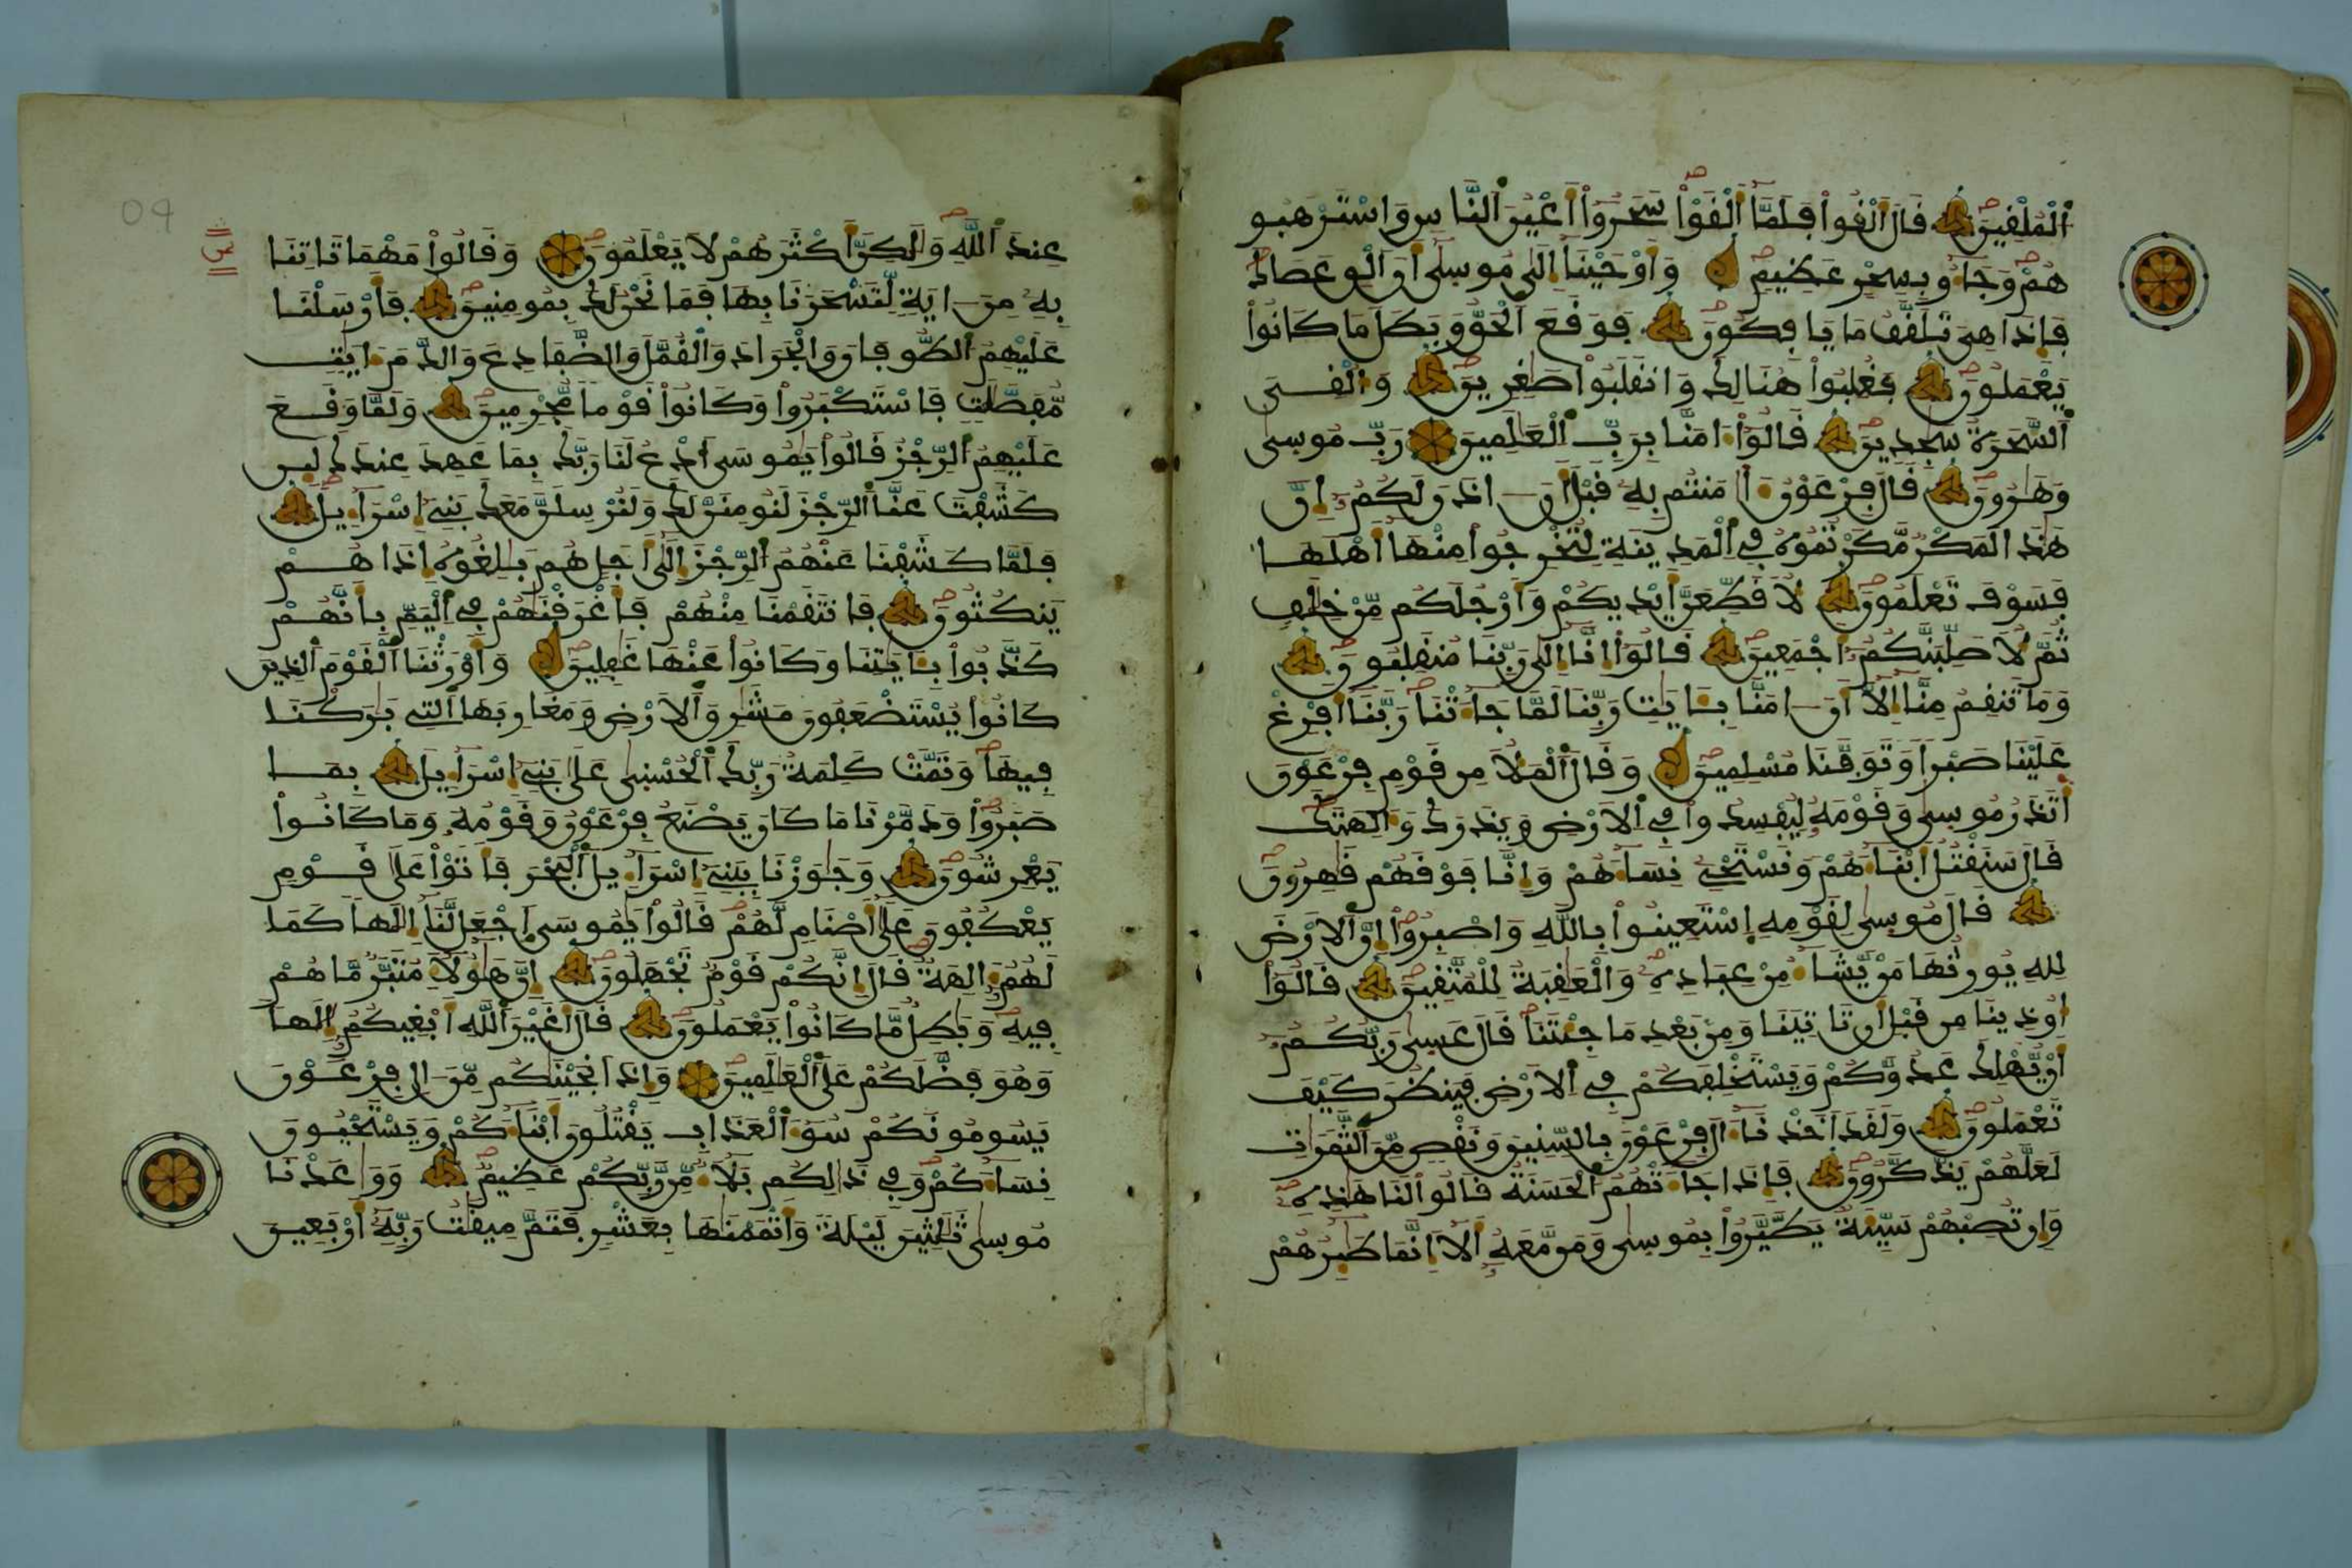 اَلْمُلْقِينَ قَالَ أَلْقُواْ فَلَمَّا أَلْقَوْاْ سَحَرُواْ أَعْيُنَ اَلنَّاسِ وَاسْتَرْهَبُو
هُمْ وَجَآءُو بِسِحْرٍ عَظِيمٍ وَأَوْحَيْنَا إِلَىٰ مُوسَىٰ أَنَ اَلْقِ عَصَاكَ
فَإِذَا هِيَ تَلَقَّفُ مَا يَافِكُونَ فَوَقَعَ اَلْحَقُّ وَبَطَلَ مَا كَانُواْ
يَعْمَلُونَ فَغُلِبُواْ هُنَالِكَ وَانقَلَبُواْ صَٰغِرِينَ وَأُلْقِىَ
اَلسَّحَرَةُ سَٰجِدِينَ قَالُواْ ءَامَنَّا بِرَبِّ اِلْعَٰلَمِينَ رَبِّ مُوسَىٰ
وَهَٰرُونَ قَالَ فِرْعَوْنُ ءَا۬مَنتُم بِهِ قَبْلَ أَنَ ـ اذَنَ لَكُمُۥ إِنَّ
هَٰذَا لَمَكْرٌ مَّكَرْتُمُوهُ فِي اِلْمَدِينَةِ لِتُخْرِجُواْ مِنْهَا أَهْلَهَا
فَسَوْفَ تَعْلَمُونَ لَأُقَطِّعَنَّ أَيْدِيَكُمْ وَأَرْجُلَكُم مِّنْ خِلَٰفٍ
ثُمَّ لَأُصَلِّبَنَّكُمُۥ أَجْمَعِينَ قَالُواْ إِنَّا إِلَىٰ رَبِّنَا مُنقَلِبُونَ
وَمَا تَنقِمُ مِنَّا إِلَّا أَنَ ـ امَنَّا بِـَٔايَٰتِ رَبِّنَا لَمَّا جَآءَتْنَا رَبَّنَا أَفْرِغْ
عَلَيْنَا صَبْراً وَتَوَفَّنَا مُسْلِمِينَ وَقَالَ اَلْمَلَأُ مِن قَوْمِ فِرْعَوْنَ
أَتَذَرُ مُوسَىٰ وَقَوْمَهُ لِيُفْسِدُواْ فِي اِلْأَرْضِ وَيَذَرَكَ وَءَالِهَتَكَ
قَالَ سَنَقْتُلُ أَبْنَآءَهُمْ وَنَسْتَحْيِۦ نِسَآءَهُمْ وَإِنَّا فَوْقَهُمْ قَٰهِرُونَ
قَالَ مُوسَىٰ لِقَوْمِهِ اِسْتَعِينُواْ بِاللَّهِ وَاصْبِرُواْ إِنَّ اَلْأَرْضَ
لِلهِ يُورِثُهَا مَنْ يَّشَآءُ مِنْ عِبَادِهِ وَالْعَٰقِبَةُ لِلْمُتَّقِينَ قَالُواْ
أُوذِينَا مِن قَبْلِ أَن تَاتِيَنَا وَمِنۢ بَعْدِ مَا جِئْتَنَا قَالَ عَسَىٰ رَبُّكُمُۥ
أَنْ يُّهْلِكَ عَدُوَّكُمْ وَيَسْتَخْلِفَكُمْ فِي اِلْأَرْضِ فَيَنظُرَ كَيْفَ
تَعْمَلُونَ وَلَقَدَ أَخَذْنَا ءَالَ فِرْعَوْنَ بِالسِّنِينَ وَنَقْصٍ مِّنَ اَلثَّمَرَاتِ
لَعَلَّهُمْ يَذَّكَّرُونَ فَإِذَا جَآءَتْهُمُ اَلْحَسَنَةُ قَالُواْ لَنَا هَٰذِهِ
وَإِن تُصِبْهُمْ سَيِّئَةٌ يَطَّيَّرُواْ بِمُوسَىٰ وَمَن مَّعَهُ أَلَا إِنَّمَا طَٰٓئِرُهُمْ
عِندَ اَللَّهِ وَلَٰكِنَّ أَكْثَرَهُمْ لَا يَعْلَمُونَ وَقَالُواْ مَهْمَا تَاتِنَا
بِهِ مِنَ ـ ايَةٍ لِّتَسْحَرَنَا بِهَا فَمَا نَحْنُ لَكَ بِمُومِنِينَ فَأَرْسَلْنَا
عَلَيْهِمُ اُلطُّوفَانَ وَالْجَرَادَ وَالْقُمَّلَ وَالضَّفَادِعَ وَالدَّمَ ءَايَٰتٍ
مُّفَصَّلَٰتٍ فَاسْتَكْبَرُواْ وَكَانُواْ قَوْماً مُّجْرِمِينَ وَلَمَّا وَقَعَ
عَلَيْهِمُ اُلرِّجْزُ قَالُواْ يَٰمُوسَى اَدْعُ لَنَا رَبَّكَ بِمَا عَهِدَ عِندَكَ لَئِن
كَشَفْتَ عَنَّا اَلرِّجْزَ لَنُومِنَنَّ لَكَ وَلَنُرْسِلَنَّ مَعَكَ بَنِي إِسْرَآءِيلَ
فَلَمَّا كَشَفْنَا عَنْهُمُ اُلرِّجْزَ إِلَىٰ أَجَلٍ هُم بَٰلِغُوهُ إِذَا هُمْ
يَنكُثُونَ فَانتَقَمْنَا مِنْهُمْ فَأَغْرَقْنَٰهُمْ فِي اِلْيَمِّ بِأَنَّهُمْ
كَذَّبُواْ بِـَٔايَٰتِنَا وَكَانُواْ عَنْهَا غَٰفِلِينَ وَأَوْرَثْنَا اَلْقَوْمَ اَلذِينَ
كَانُواْ يُسْتَضْعَفُونَ مَشَٰرِقَ اَلْأَرْضِ وَمَغَٰرِبَهَا اَلتِي بَٰرَكْنَا
فِيهَا وَتَمَّتْ كَلِمَةُ رَبِّكَ اَلْحُسْنَىٰ عَلَىٰ بَنِي إِسْرَآءِيلَ بِمَا
صَبَرُواْ وَدَمَّرْنَا مَا كَانَ يَصْنَعُ فِرْعَوْنُ وَقَوْمُهُ وَمَا كَانُواْ
يَعْرِشُونَ وَجَٰوَزْنَا بِبَنِي إِسْرَآءِيلَ اَلْبَحْرَ فَأَتَوْاْ عَلَىٰ قَوْمٍ
يَعْكُفُونَ عَلَىٰ أَصْنَامٍ لَّهُمْ قَالُواْ يَٰمُوسَى اَجْعَل لَّنَا إِلَٰهاً كَمَا
لَهُمُۥ ءَالِهَةٌ قَالَ إِنَّكُمْ قَوْمٌ تَجْهَلُونَ إِنَّ هَٰؤُلَآءِ مُتَبَّرٌ مَّا هُمْ
فِيهِ وَبَٰطِلٌ مَّا كَانُواْ يَعْمَلُونَ قَالَ أَغَيْرَ اَللَّهِ أَبْغِيكُمُۥ إِلَٰهاً
وَهُوَ فَضَّلَكُمْ عَلَى اَلْعَٰلَمِينَ وَإِذَ أَنجَيْنَٰكُم مِّنَ ـ الِ فِرْعَوْنَ
يَسُومُونَكُمْ سُوٓءَ اَلْعَذَابِ يَقْتُلُونَ أَبْنَآءَكُمْ وَيَسْتَحْيُونَ
نِسَآءَكُمْ وَفِي ذَٰلِكُم بَلَآءٌ مِّن رَّبِّكُمْ عَظِيمٌ وَوَٰعَدْنَا
مُوسَىٰ ثَلَٰثِينَ لَيْلَةً وَأَتْمَمْنَٰهَا بِعَشْرٍ فَتَمَّ مِيقَٰتُ رَبِّهِ أَرْبَعِينَ